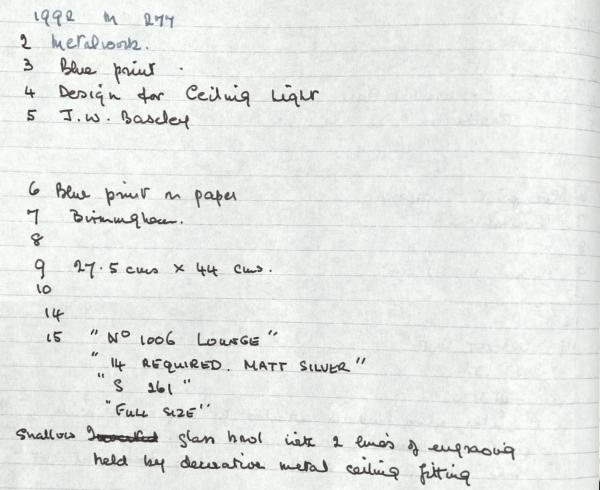 1992 M 277
2 Metalwork.
3 Blue print.
4 Design for Ceiling Light
5 J.W. Baseley
6 Blue print on paper
7 Birmingham.
8
9 27.5 cms × 44 cms.
10
14
15 "Nº 1006 LOUNGE"
"14 REQUIRED. MATT SILVER"
"S 261"
"FULL SIZE"
Shallow glass bowl with 2 lines of engraving
held by decorative metal ceiling fitting